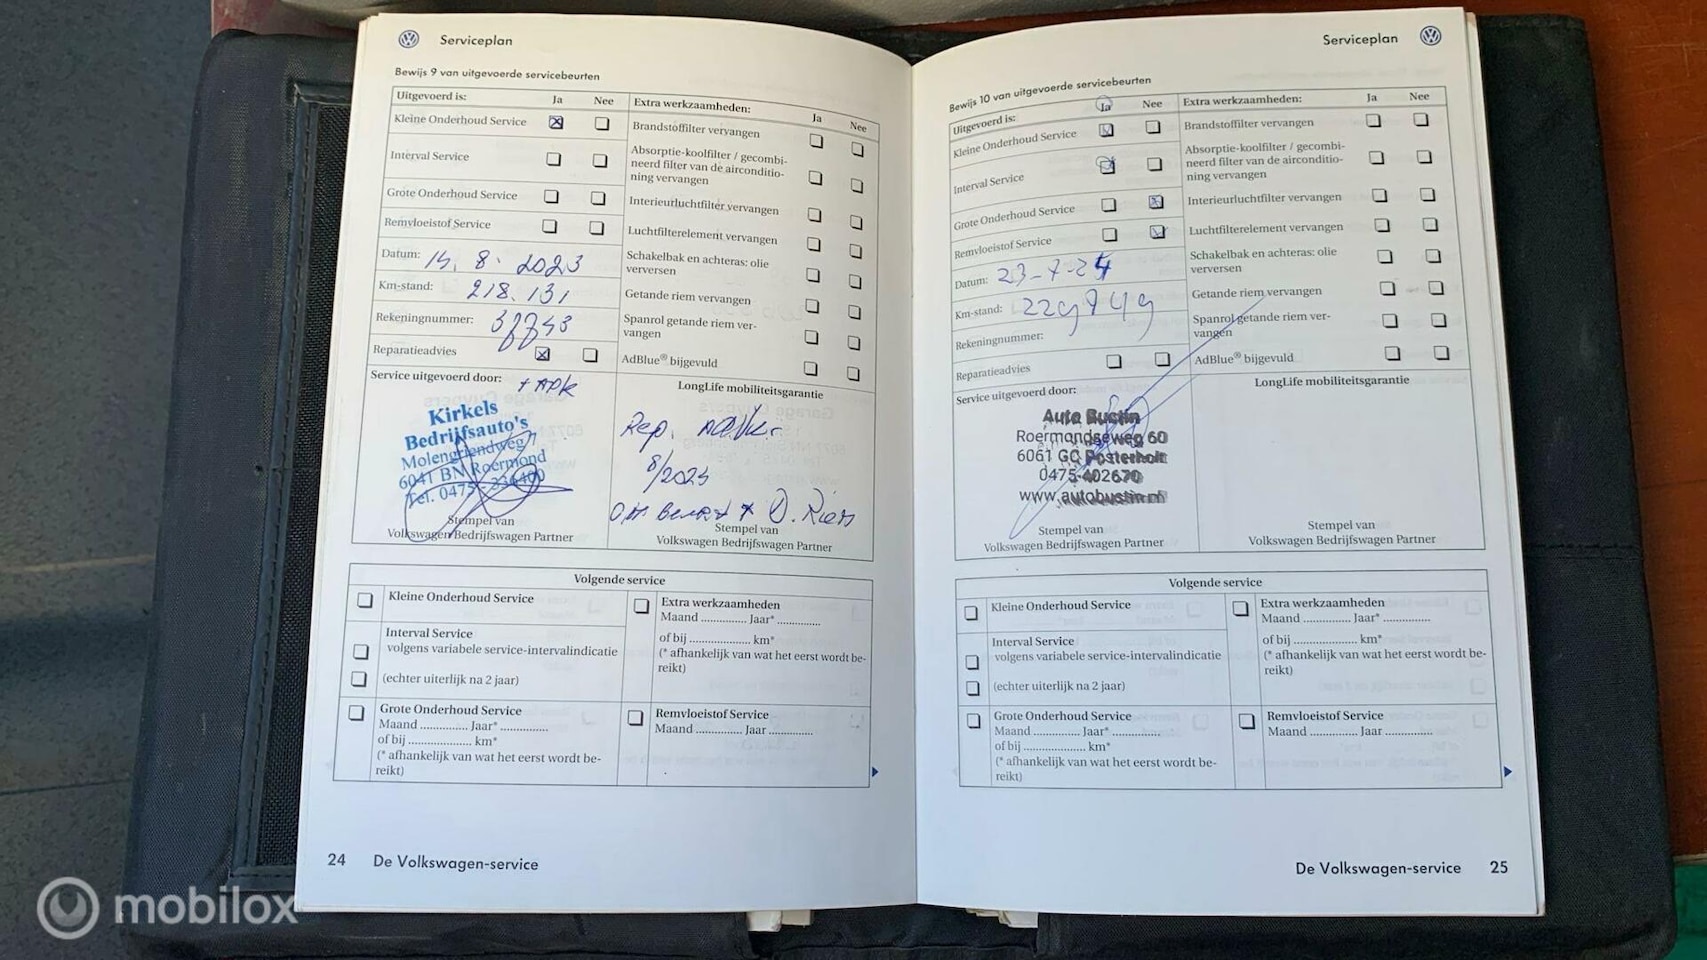 Serviceplan
Bewijs 9 van uitgevoerde servicebeurten
Uitgevoerd is: Ja Nee
Kleine Onderhoud Service
Interval Service
Grote Onderhoud Service
Remvloeistof Service
Datum: 14. 8. 2023
Km-stand: 218.131
Rekeningnummer:
Reparatieadvies
Service uitgevoerd door: + APK
Kirkels
Bedrijfsauto's
Molengriendweg
6041 BN Roermond
Tel. 0475 -
Stempel van
Volkswagen Bedrijfswagen Partner
Extra werkzaamheden: Ja Nee
Brandstoffilter vervangen
Absorptie-koolfilter / gecombi-
neerd filter van de airconditio-
ning vervangen
Interieurluchtfilter vervangen
Luchtfilterelement vervangen
Schakelbak en achteras: olie
verversen
Getande riem vervangen
Spanrol getande riem ver-
vangen
AdBlue® bijgevuld
LongLife mobiliteitsgarantie
Rep.
8/2023
D. Riem
Stempel van
Volkswagen Bedrijfswagen Partner
Volgende service
Kleine Onderhoud Service
Interval Service
volgens variabele service-intervalindicatie
(echter uiterlijk na 2 jaar)
Grote Onderhoud Service
Maand .............. Jaar* ..............
of bij .................... km*
(* afhankelijk van wat het eerst wordt be-
reikt)
Extra werkzaamheden
Maand .............. Jaar* ..............
of bij .................... km*
(* afhankelijk van wat het eerst wordt be-
reikt)
Remvloeistof Service
Maand .............. Jaar ..............
24 De Volkswagen-service
Serviceplan
Bewijs 10 van uitgevoerde servicebeurten
Uitgevoerd is: Ja Nee
Kleine Onderhoud Service
Interval Service
Grote Onderhoud Service
Remvloeistof Service
Datum: 23-7-24
Km-stand: 229849
Rekeningnummer:
Reparatieadvies
Service uitgevoerd door:
Auto Bustin
Roermondseweg 60
6061 GC Posterholt
0475-402670
www.autobustin.nl
Stempel van
Volkswagen Bedrijfswagen Partner
Extra werkzaamheden: Ja Nee
Brandstoffilter vervangen
Absorptie-koolfilter / gecombi-
neerd filter van de airconditio-
ning vervangen
Interieurluchtfilter vervangen
Luchtfilterelement vervangen
Schakelbak en achteras: olie
verversen
Getande riem vervangen
Spanrol getande riem ver-
vangen
AdBlue® bijgevuld
LongLife mobiliteitsgarantie
Stempel van
Volkswagen Bedrijfswagen Partner
Volgende service
Kleine Onderhoud Service
Interval Service
volgens variabele service-intervalindicatie
(echter uiterlijk na 2 jaar)
Grote Onderhoud Service
Maand .............. Jaar* ..............
of bij .................... km*
(* afhankelijk van wat het eerst wordt be-
reikt)
Extra werkzaamheden
Maand .............. Jaar* ..............
of bij .................... km*
(* afhankelijk van wat het eerst wordt be-
reikt)
Remvloeistof Service
Maand .............. Jaar ..............
De Volkswagen-service 25
mobilox